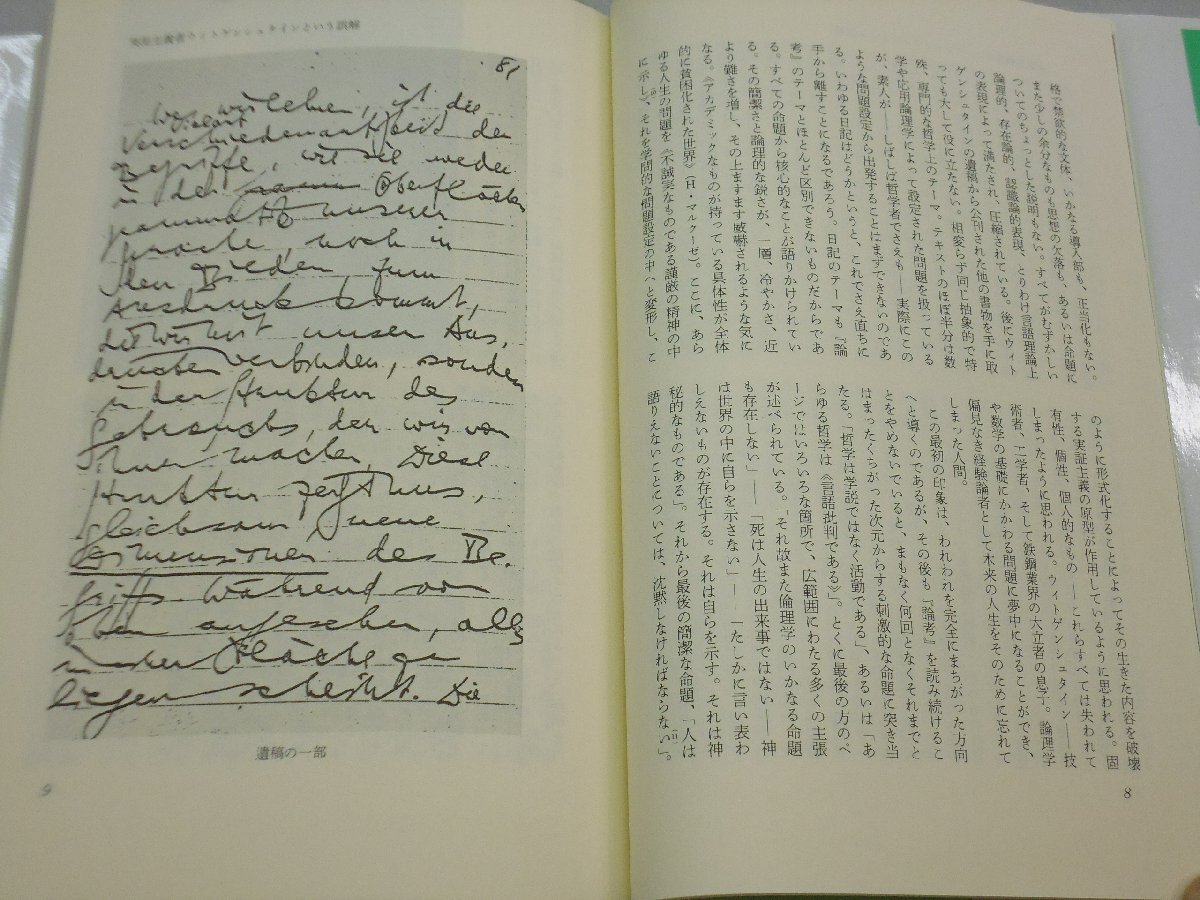 格で禁欲的な文体、いかなる導入部も、正当化もない。
また少しの余分なものも思想の欠落も、あるいは命題に
ついてのちょっとした説明もない。すべてがむずかしい
論理的、存在論的、認識論的表現、とりわけ言語理論上
の表現によって満たされ、圧縮されている。後にウィト
ゲンシュタインの遺稿から公刊された他の書物を手に取
っても大して役に立たない。相変らず同じ抽象的で特
殊、専門的な哲学上のテーマ。テキストのほぼ半分は数
学や応用論理学によって設定された問題を扱っている
が、素人が――しばしば哲学者でさえも――実際にこの
ような問題設定から出発することはまずできないのであ
る。いわゆる日記はどうかというと、これでさえ直ちに
手から離すことになるであろう。日記のテーマも『論
考』のテーマとほとんど区別できないものだからであ
る。すべての命題から核心的なことが語りかけられてい
る。その簡潔さと論理的な鋭さが、一層、冷やかさ、近
より難さを増し、その上ますます威嚇されるような気に
なる。《アカデミックなものが持っている具体性が全体
的に貧困化された世界》(H・マルクーゼ)。ここに、あら
ゆる人生の問題を《不誠実なものである謹厳の精神の中
に示し》、それを学問的な問題設定の中へと変形し、こ
のように形式化することによってその生きた内容を破壊
する実証主義の原型が作用しているように思われる。固
有性、個性、個人的なもの――これらすべては失われて
しまったように思われる。ウィトゲンシュタイン――技
術者、工学者、そして鉄鋼業界の大立者の息子。論理学
や数学の基礎にかかわる問題に夢中になることができ、
偏見なき経験論者として本来の人生をそのために忘れて
しまった人間。
この最初の印象は、われわれを完全にまちがった方向
へと導くのであるが、その後も『論考』を読み続けるこ
とをやめないでいると、まもなく何回となくそれまでと
はまったくちがった次元からする刺激的な命題に突き当
たる。「哲学は学説ではなく活動である」、あるいは「あ
らゆる哲学は《言語批判である》」。とくに最後の方のペ
ージではいろいろな箇所で、広範囲にわたる多くの主張
が述べられている。「それ故また倫理学のいかなる命題
も存在しない」――「死は人生の出来事ではない――神
は世界の中に自らを示さない」――「たしかに言い表わ
しえないものが存在する。それは自らを示す。それは神
秘的なものである」。それから最後の簡潔な命題、「人は
語りえないことについては、沈黙しなければならない」。
8
実証主義者ウィトゲンシュタインという誤解
81
wir sehen, ist die
Verschiedenartigkeit der
Begriffe, wie sie weder
in der Oberfläche
unserer
Sprache, noch in
den zum
Ausdruck kommt,
unser Aus
verbinden, sondern
in der Struktur des
Gebrauchs, den wir von
ihnen machen. Diese
Struktur zeigt uns,
gleichsam, neue
Dimensionen des Be-
griffs während von
oben angesehen, alles
in einer Fläche zu
liegen scheint. Die
遺稿の一部
9